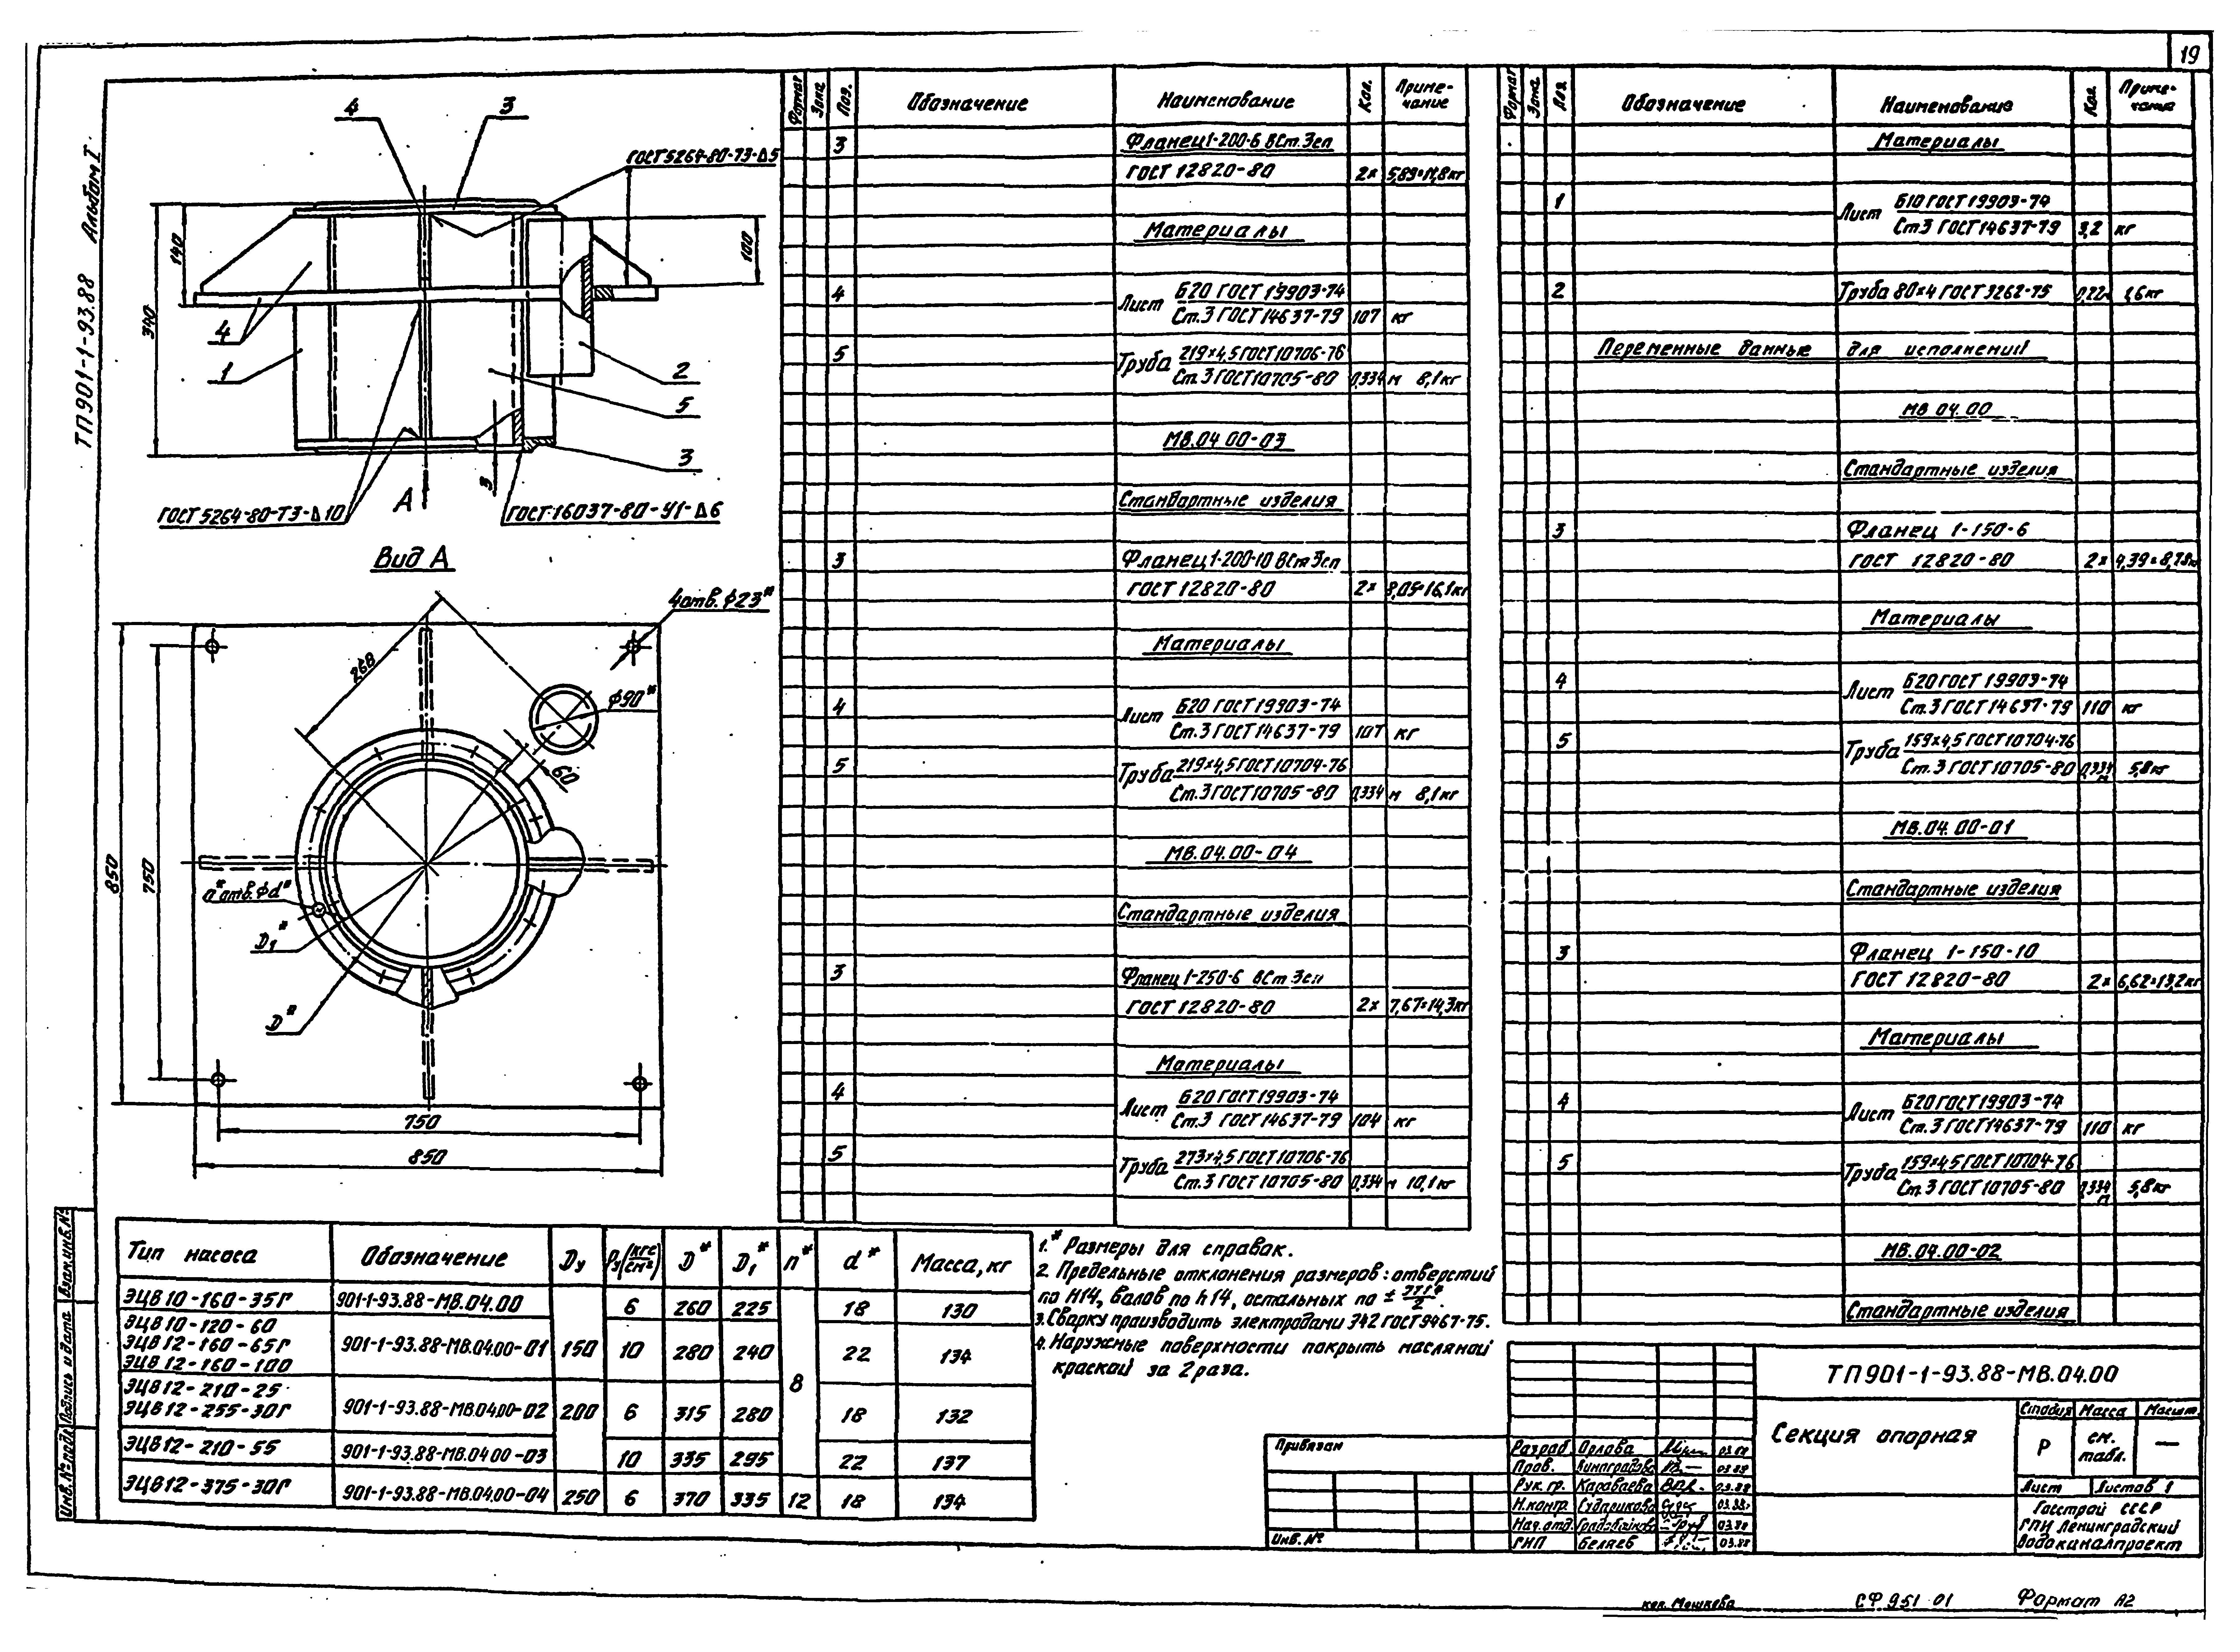 19
ТП901-1-93.88 Альбом I
4
3
ГОСТ 5264-80-Т3-Δ5
140
340
100
4
1
2
5
3
3
А
ГОСТ 5264-80-Т3-Δ10
ГОСТ 16037-80-У1-Δ6
Вид А
4 отв. ф23*
268
ф90*
60
n* отв. фd*
D₁*
D*
850
750
750
850
Формат Зона Поз. Обозначение Наименование Кол. Приме-
чание
3 Фланец 1-200-6 ВСт.3сп
ГОСТ 12820-80 2× 5,89=11,8кг
Материалы
4 Лист Б20 ГОСТ 19903-74
Ст.3 ГОСТ 14637-79 107 кг
5 Труба 219×4,5 ГОСТ 10706-76
Ст.3 ГОСТ 10705-80 0,334 м 8,1кг
МВ.04 00-03
Стандартные изделия
3 Фланец 1-200-10 ВСт3сп
ГОСТ 12820-80 2× 8,05=16,1кг
Материалы
4 Лист Б20 ГОСТ 19903-74
Ст.3 ГОСТ 14637-79 107 кг
5 Труба 219×4,5 ГОСТ 10704-76
Ст.3 ГОСТ 10705-80 0,334 м 8,1кг
МВ.04.00-04
Стандартные изделия
3 Фланец 1-250-6 ВСт.3сп
ГОСТ 12820-80 2× 7,67=14,3кг
Материалы
4 Лист Б20 ГОСТ 19903-74
Ст.3 ГОСТ 14637-79 104 кг
5 Труба 273×4,5 ГОСТ 10706-76
Ст.3 ГОСТ 10705-80 0,334 м 10,1кг
Формат Зона Поз. Обозначение Наименование Кол. Приме-
чание
Материалы
1 Лист Б10 ГОСТ 19903-74
Ст3 ГОСТ 14637-79 3,2 кг
2 Труба 80×4 ГОСТ 3262-75 0,22м 1,6кг
Переменные данные для исполнений
МВ 04.00
Стандартные изделия
3 Фланец 1-150-6
ГОСТ 12820-80 2× 4,39=8,78кг
Материалы
4 Лист Б20 ГОСТ 19903-74
Ст.3 ГОСТ 14637-79 110 кг
5 Труба 159×4,5 ГОСТ 10704-76
Ст.3 ГОСТ 10705-80 0,334 м 5,8кг
МВ.04.00-01
Стандартные изделия
3 Фланец 1-150-10
ГОСТ 12820-80 2× 6,62=13,2кг
Материалы
4 Лист Б20 ГОСТ 19903-74
Ст.3 ГОСТ 14637-79 110 кг
5 Труба 159×4,5 ГОСТ 10704-76
Ст.3 ГОСТ 10705-80 0,334 м 5,8кг
МВ.04.00-02
Стандартные изделия
Тип насоса Обозначение Dу Pу(кгс/см²) D* D₁* n* d* Масса, кг
ЭЦВ10-160-35Г 901-1-93.88-МВ.04.00 6 260 225 18 130
ЭЦВ10-120-60
ЭЦВ12-160-65Г 901-1-93.88-МВ.04.00-01 150 10 280 240 22 134
ЭЦВ12-160-100
8
ЭЦВ12-210-25
ЭЦВ12-255-30Г 901-1-93.88-МВ.04.00-02 200 6 315 280 18 132
ЭЦВ12-210-55 901-1-93.88-МВ.04.00-03 10 335 295 22 137
ЭЦВ12-375-30Г 901-1-93.88-МВ.04.00-04 250 6 370 335 12 18 134
1.* Размеры для справок.
2. Предельные отклонения размеров: отверстий
по H14, валов по h14, остальных по ± IT14/2.
3. Сварку производить электродами Э42 ГОСТ 9467-75.
4. Наружные поверхности покрыть масляной
краской за 2 раза.
Привязан
Инв. №
Разраб. Орлова 03.88
Пров. Виноградова 03.88
Рук. гр. Караваева 03.88
Н.контр. Сударикова 03.88
Нач.отд. 03.88
ГИП Беляев 03.88
ТП901-1-93.88-МВ.04.00
Секция опорная
Стадия Масса Масшт.
Р см. табл. —
Лист Листов 1
Госстрой СССР
ГПИ Ленинградский
Водоканалпроект
Инв. № подл. Подпись и дата Взам.инв.№
коп. Мошкова
СФ 951 01
Формат А2